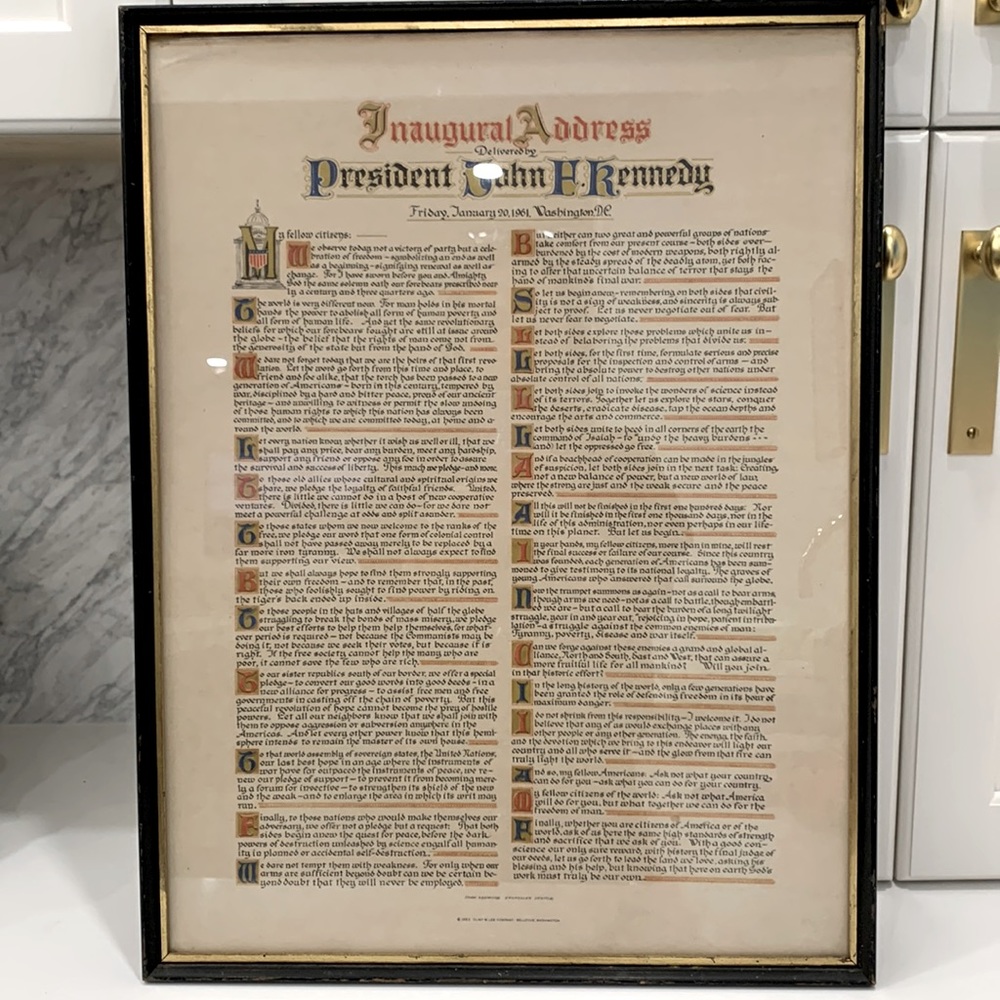 Inaugural Address
Delivered by
President John F. Kennedy
Friday, January 20, 1961, Washington, D.C.
My fellow citizens:
We observe today not a victory of party but a cele-
bration of freedom — symbolizing an end as well
as a beginning — signifying renewal as well as
change. For I have sworn before you and Almighty
God the same solemn oath our forebears prescribed near-
ly a century and three quarters ago.
The world is very different now. For man holds in his mortal
hands the power to abolish all form of human poverty and
all form of human life. And yet the same revolutionary
beliefs for which our forebears fought are still at issue around
the globe — the belief that the rights of man come not from
the generosity of the state but from the hand of God.
We dare not forget today that we are the heirs of that first revo-
lution. Let the word go forth from this time and place, to
friend and foe alike, that the torch has been passed to a new
generation of Americans — born in this century, tempered by
war, disciplined by a hard and bitter peace, proud of our ancient
heritage — and unwilling to witness or permit the slow undoing
of those human rights to which this nation has always been
committed, and to which we are committed today, at home and a-
round the world.
Let every nation know, whether it wish us well or ill, that we
shall pay any price, bear any burden, meet any hardship,
support any friend or oppose any foe in order to assure
the survival and success of liberty. This much we pledge — and more.
To those old allies whose cultural and spiritual origins we
share, we pledge the loyalty of faithful friends. United,
there is little we cannot do in a host of new cooperative
ventures. Divided, there is little we can do — for we dare not
meet a powerful challenge at odds and split asunder.
To those states whom we now welcome to the ranks of the
free, we pledge our word that one form of colonial control
shall not have passed away merely to be replaced by a
far more iron tyranny. We shall not always expect to find
them supporting our view.
But we shall always hope to find them strongly supporting
their own freedom — and to remember that, in the past,
those who foolishly sought to find power by riding on
the tiger's back ended up inside.
To those people in the huts and villages of half the globe
struggling to break the bonds of mass misery, we pledge
our best efforts to help them help themselves, for what-
ever period is required — not because the Communists may be
doing it, not because we seek their votes, but because it is
right. If the free society cannot help the many who are
poor, it cannot save the few who are rich.
To our sister republics south of our border, we offer a special
pledge — to convert our good words into good deeds — in a
new alliance for progress — to assist free men and free
governments in casting off the chain of poverty. But this
peaceful revolution of hope cannot become the prey of hostile
powers. Let all our neighbors know that we shall join with
them to oppose aggression or subversion anywhere in the
Americas. And let every other power know that this hemi-
sphere intends to remain the master of its own house.
To that world assembly of sovereign states, the United Nations,
our last best hope in an age where the instruments of
war have far outpaced the instruments of peace, we re-
new our pledge of support — to prevent it from becoming mere-
ly a forum for invective — to strengthen its shield of the new
and the weak — and to enlarge the area in which its writ may
run.
Finally, to those nations who would make themselves our
adversary, we offer not a pledge but a request: That both
sides begin anew the quest for peace, before the dark
powers of destruction unleashed by science engulf all human-
ity in planned or accidental self-destruction.
We dare not tempt them with weakness. For only when our
arms are sufficient beyond doubt can we be certain be-
yond doubt that they will never be employed.
But neither can two great and powerful groups of nations
take comfort from our present course — both sides over-
burdened by the cost of modern weapons, both rightly al-
armed by the steady spread of the deadly atom, yet both rac-
ing to alter that uncertain balance of terror that stays the
hand of mankind's final war.
So let us begin anew — remembering on both sides that civil-
ity is not a sign of weakness, and sincerity is always sub-
ject to proof. Let us never negotiate out of fear. But
let us never fear to negotiate.
Let both sides explore those problems which unite us in-
stead of belaboring the problems that divide us.
Let both sides, for the first time, formulate serious and precise
proposals for the inspection and control of arms — and
bring the absolute power to destroy other nations under
absolute control of all nations.
Let both sides join to invoke the wonders of science instead
of its terrors. Together let us explore the stars, conquer
the deserts, eradicate disease, tap the ocean depths and
encourage the arts and commerce.
Let both sides unite to heed in all corners of the earth the
command of Isaiah — to "undo the heavy burdens ---
and) let the oppressed go free."
And if a beachhead of cooperation can be made in the jungles
of suspicion, let both sides join in the next task: Creating,
not a new balance of power, but a new world of law,
where the strong are just and the weak secure and the peace
preserved.
All this will not be finished in the first one hundred days. Nor
will it be finished in the first one thousand days, nor in the
life of this administration, nor even perhaps in our life-
time on this planet. But let us begin.
In your hands, my fellow citizens, more than in mine, will rest
the final success or failure of our course. Since this country
was founded, each generation of Americans has been sum-
moned to give testimony to its national loyalty. The graves of
young Americans who answered that call surround the globe.
Now the trumpet summons us again — not as a call to bear arms,
though arms we need — not as a call to battle, though embattl-
ed we are — but a call to bear the burden of a long twilight
struggle, year in and year out, "rejoicing in hope, patient in tribu-
lation" — a struggle against the common enemies of man:
Tyranny, poverty, disease and war itself.
Can we forge against these enemies a grand and global al-
liance, North and South, East and West, that can assure a
more fruitful life for all mankind? Will you join
in that historic effort?
In the long history of the world, only a few generations have
been granted the role of defending freedom in its hour of
maximum danger.
I do not shrink from this responsibility — I welcome it. I do not
believe that any of us would exchange places with any
other people or any other generation. The energy, the faith,
and the devotion which we bring to this endeavor will light our
country and all who serve it — and the glow from that fire can
truly light the world.
And so, my fellow Americans: Ask not what your country
can do for you — ask what you can do for your country.
My fellow citizens of the world: Ask not what America
will do for you, but what together we can do for the
freedom of man.
Finally, whether you are citizens of America or of the
world, ask of us here the same high standards of strength
and sacrifice that we ask of you. With a good con-
science our only sure reward, with history the final judge of
our deeds, let us go forth to lead the land we love, asking his
blessing and his help, but knowing that here on earth God's
work must truly be our own.